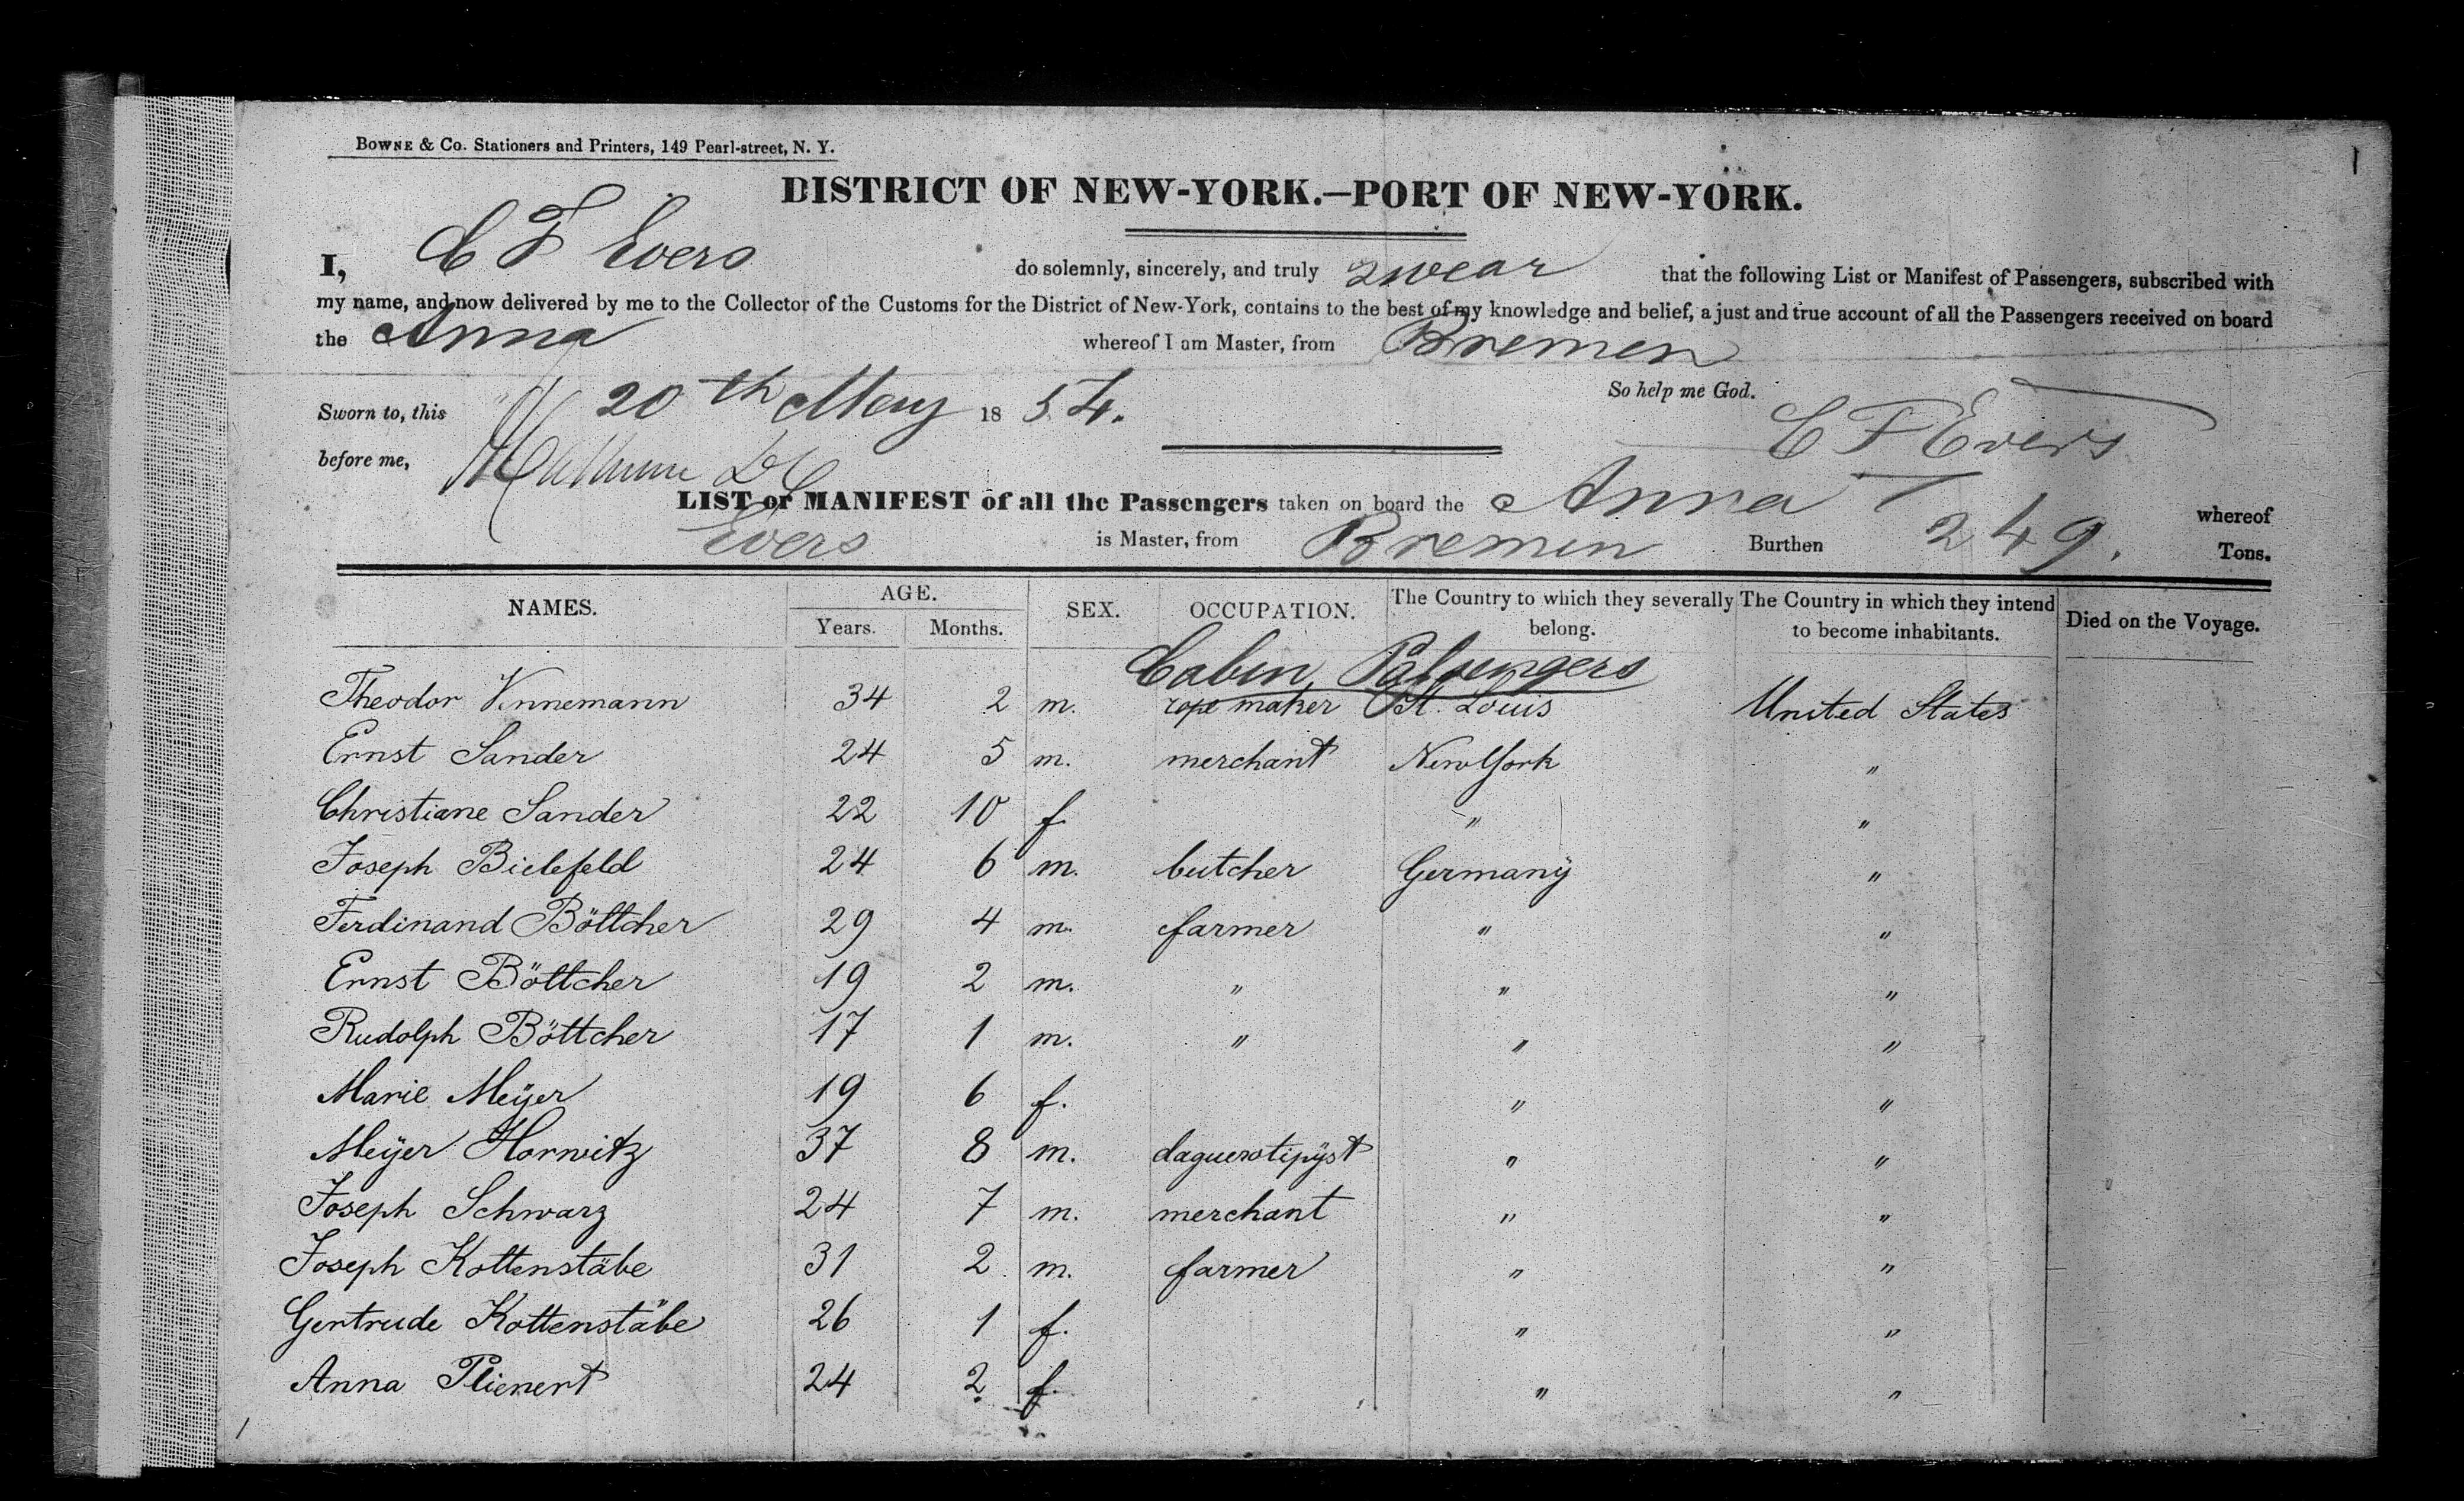 1
BOWNE & CO. Stationers and Printers, 149 Pearl-street, N. Y.
DISTRICT OF NEW-YORK.—PORT OF NEW-YORK.
I, C F Evers do solemnly, sincerely, and truly swear that the following List or Manifest of Passengers, subscribed with
my name, and now delivered by me to the Collector of the Customs for the District of New-York, contains to the best of my knowledge and belief, a just and true account of all the Passengers received on board
the Anna whereof I am Master, from Bremen
So help me God.
Sworn to, this 20th May 1854. C F Evers
before me,
LIST or MANIFEST of all the Passengers taken on board the Anna whereof
Evers is Master, from Bremen Burthen 249. Tons.
NAMES. AGE. Years. Months. SEX. OCCUPATION. The Country to which they severally belong. The Country in which they intend to become inhabitants. Died on the Voyage.
Cabin Passengers
Theodor Vinnemann 34 2 m. rope maker St. Louis United States
Ernst Sander 24 5 m. merchant New York "
Christiane Sander 22 10 f " "
Joseph Bielefeld 24 6 m. butcher Germany "
Ferdinand Böttcher 29 4 m. farmer " "
Ernst Böttcher 19 2 m. " " "
Rudolph Böttcher 17 1 m. " " "
Marie Meÿer 19 6 f. " "
Meÿer Horwitz 37 8 m. daguerotipÿst " "
Joseph Schwarz 24 7 m. merchant " "
Joseph Kottenstäbe 31 2 m. farmer " "
Gertrude Kottenstäbe 26 1 f. " "
Anna Plienert 24 2 f. " "